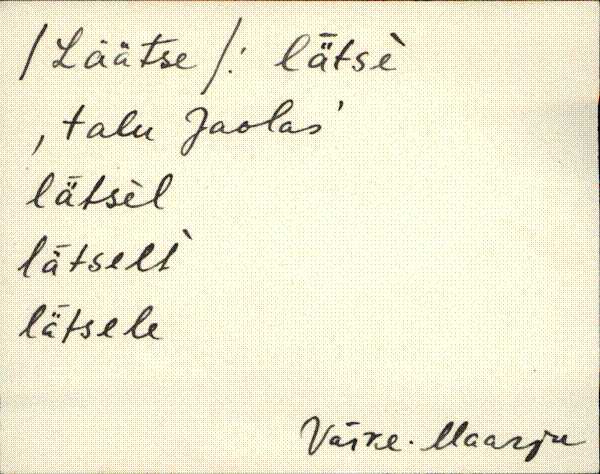 /Läätse/: lä̆tsè
‚talu Jaolas’
lä̆tsèl
lä̆tselt̀
lä̆tsele
Väike-Maarja